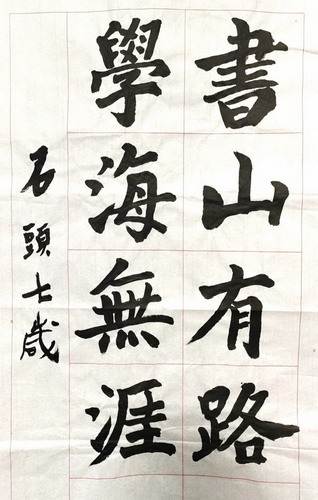 書山有路
學海無涯
石頭七歳